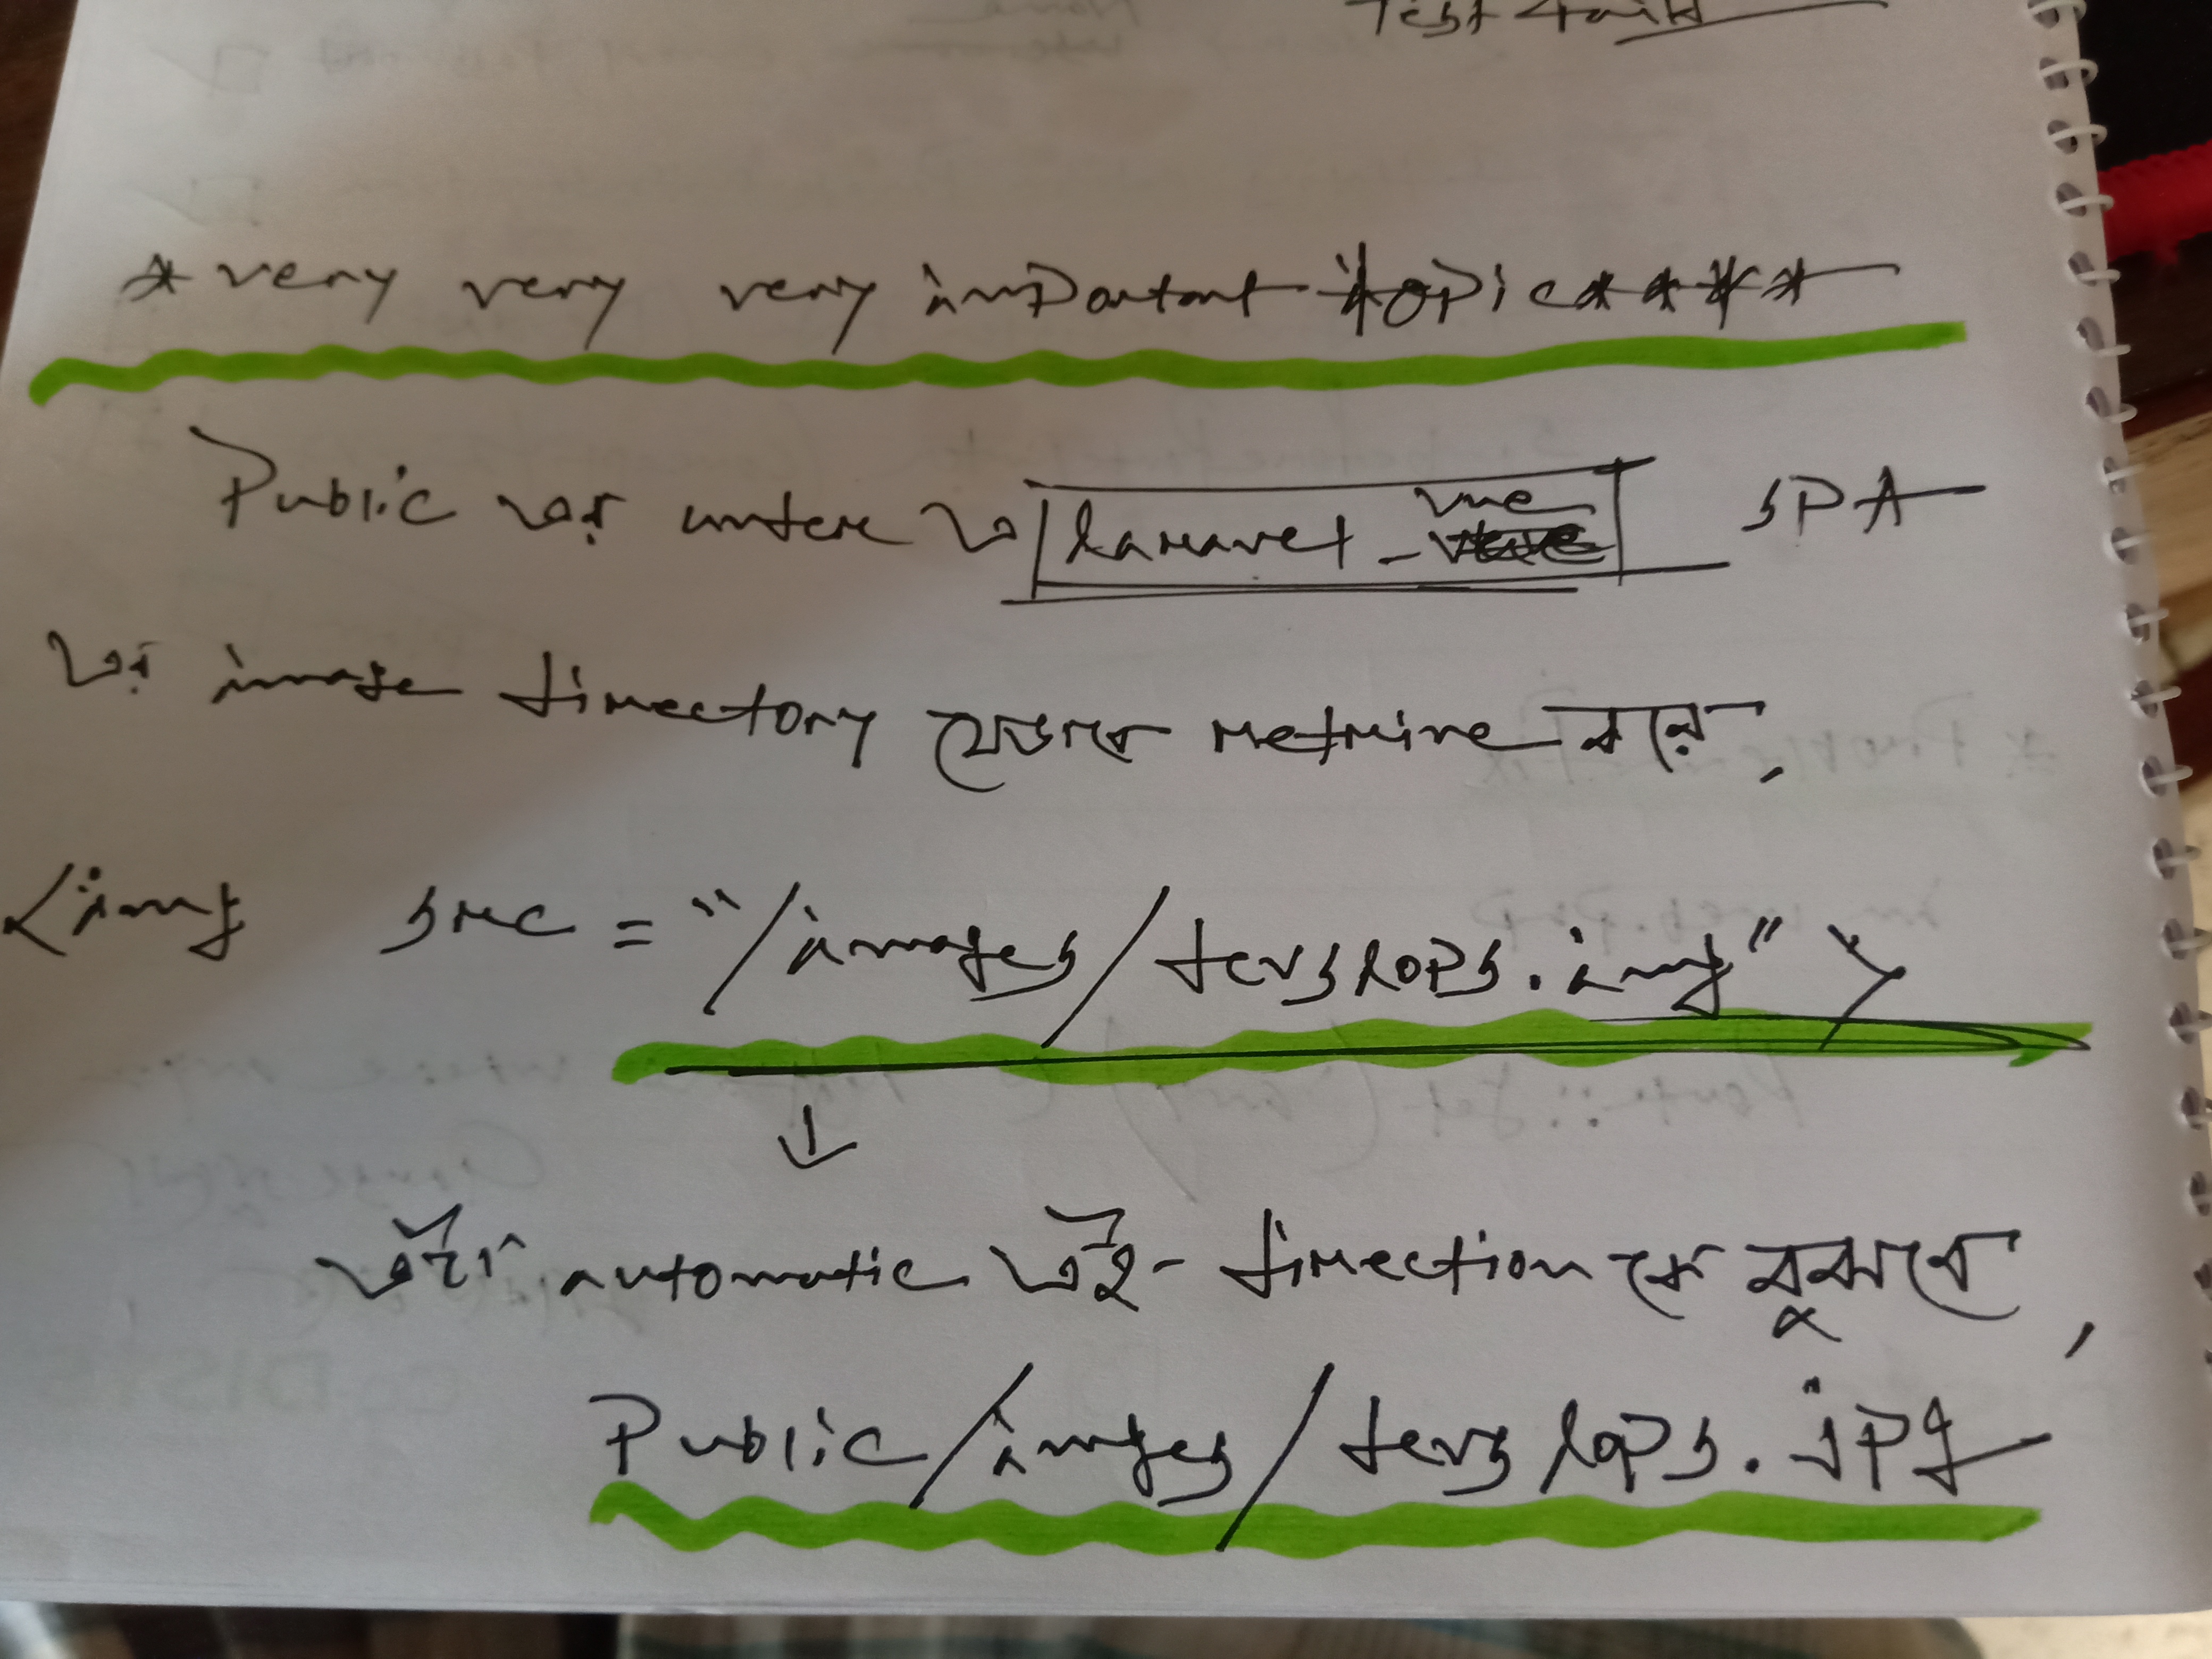 * very very very important topic * * * *
Public এর under এ laravel - vue SPA
এর image directory যেভাবে retrive করে,
<img src = "/images/devslops.img" >
↓
এটা automatic এই - direction কে বুঝাবে,
Public/images/devslops.jpg